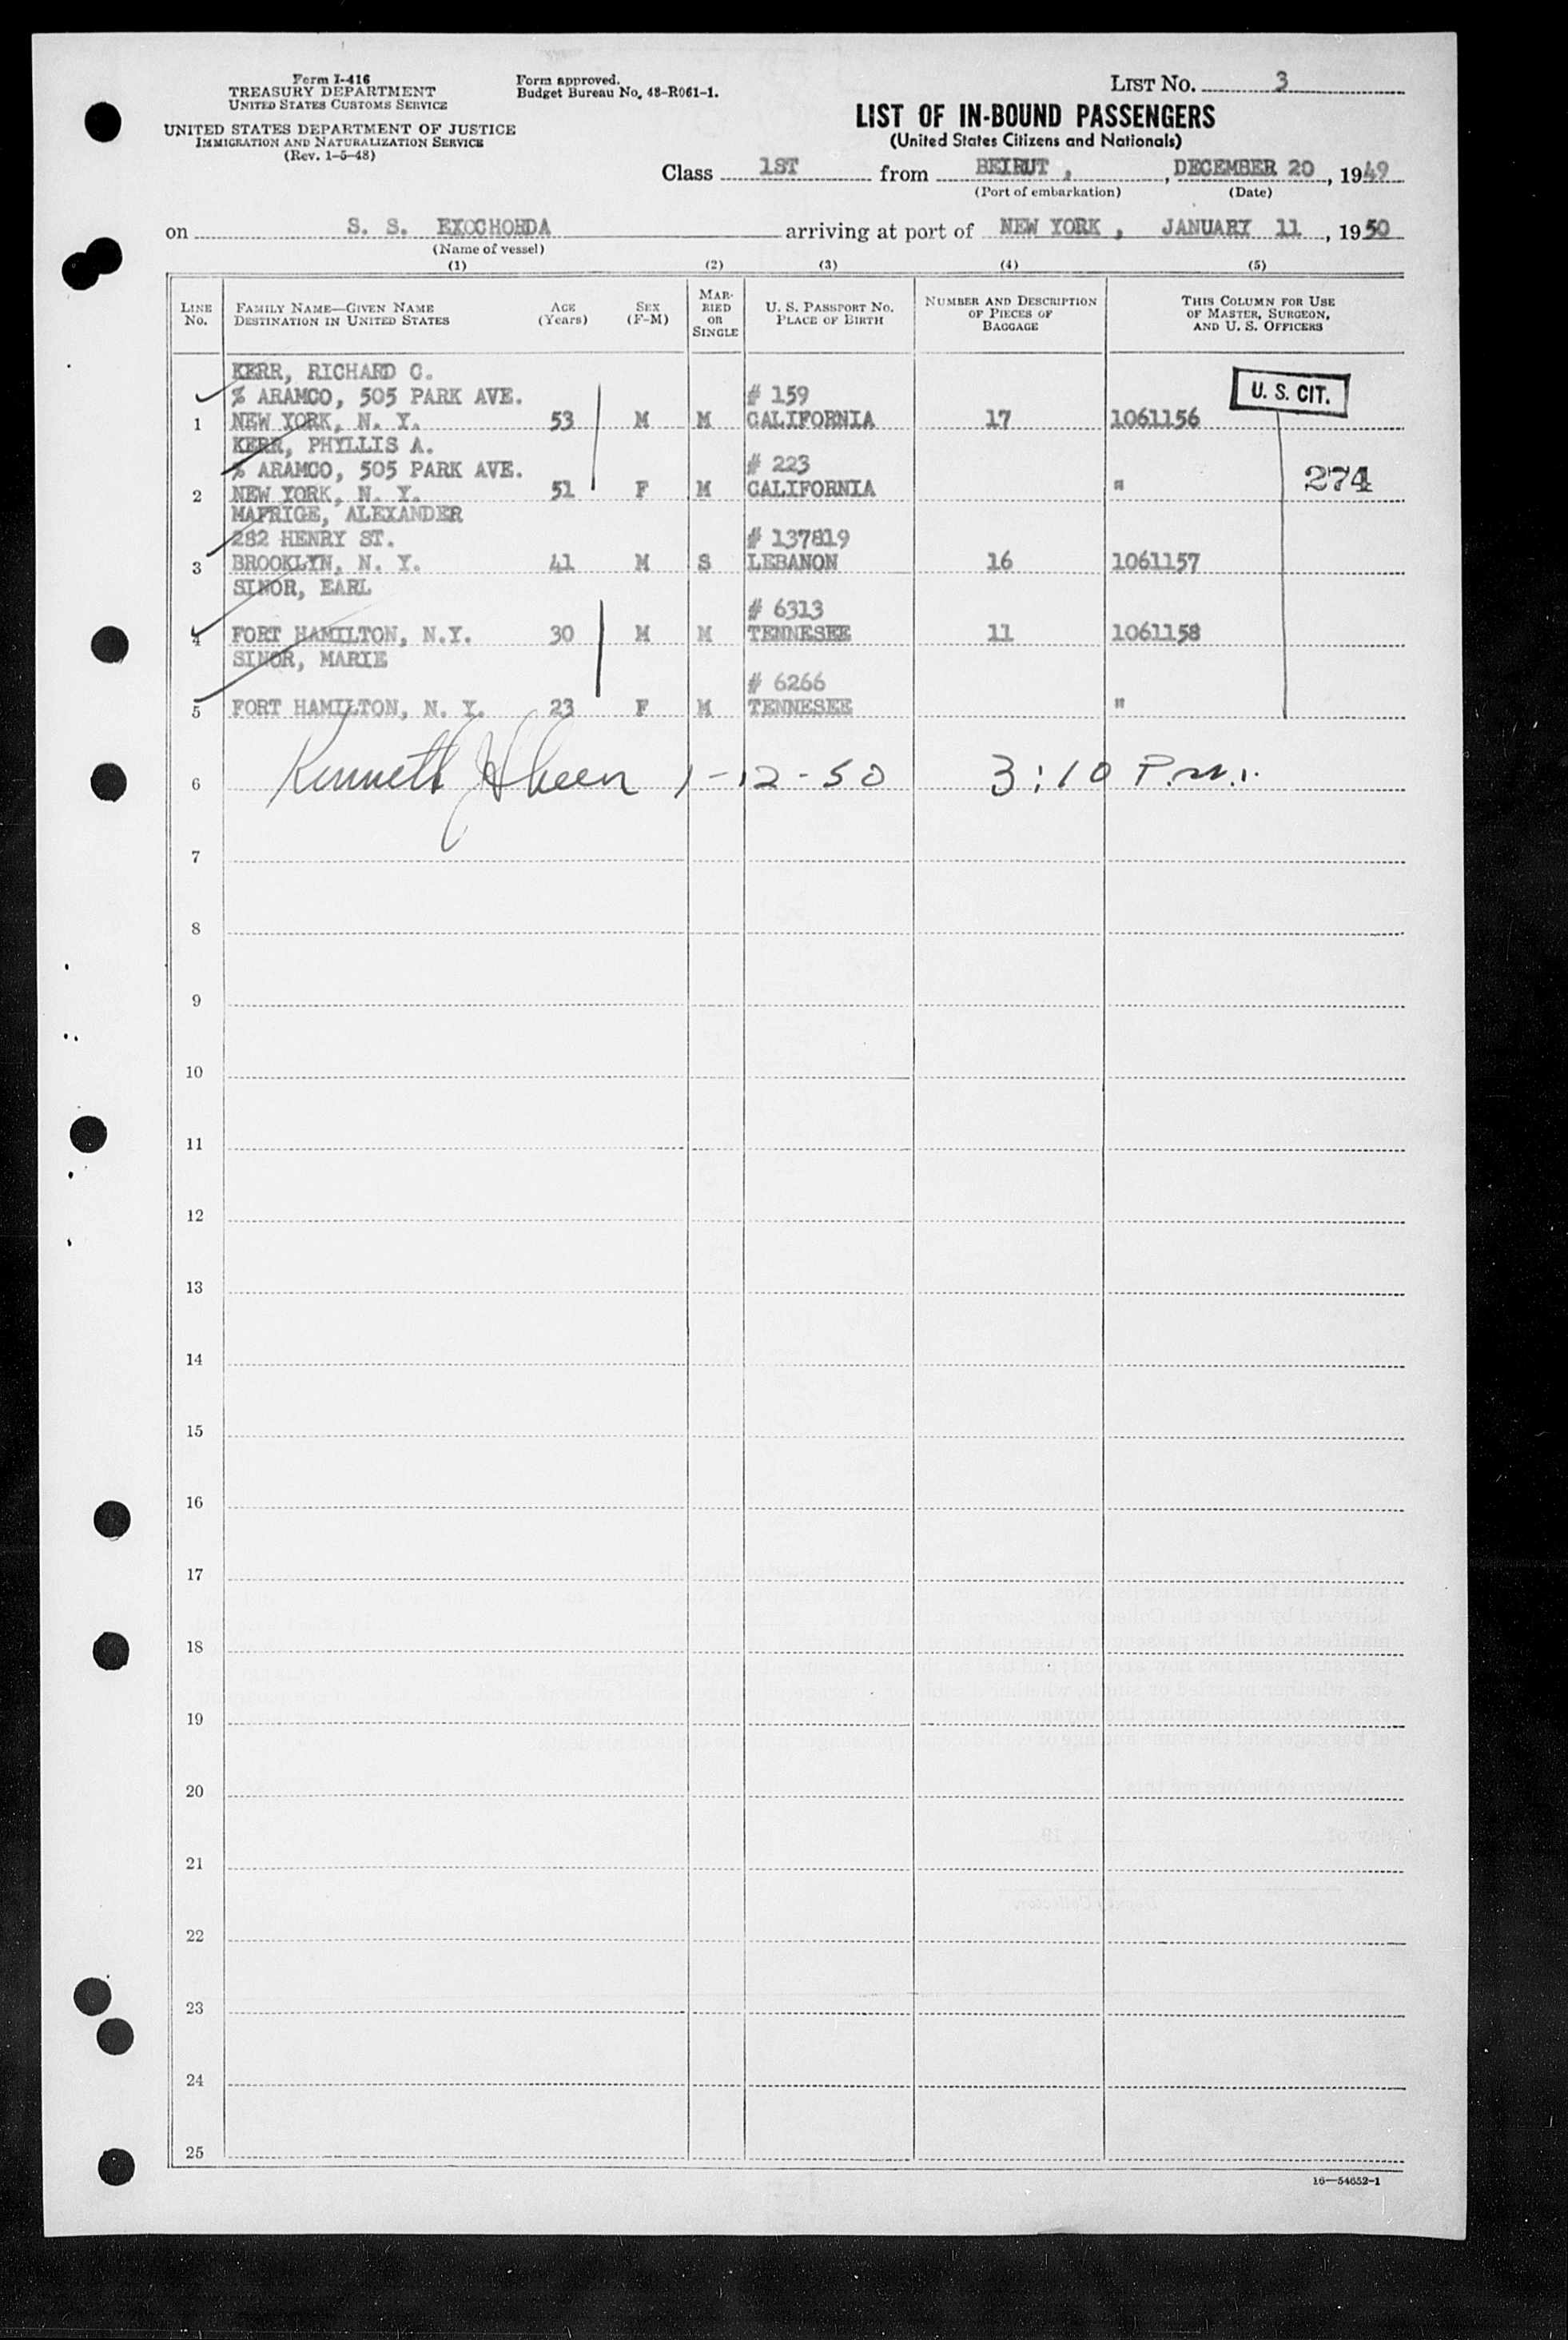 Form I-416
TREASURY DEPARTMENT
UNITED STATES CUSTOMS SERVICE
UNITED STATES DEPARTMENT OF JUSTICE
IMMIGRATION AND NATURALIZATION SERVICE
(Rev. 1-5-48)
Form approved.
Budget Bureau No. 48-R061-1.
LIST NO. 3
LIST OF IN-BOUND PASSENGERS
(United States Citizens and Nationals)
Class 1ST from BEIRUT , , DECEMBER 20 , 1949
(Port of embarkation) (Date)
on S. S. EXOCHORDA arriving at port of NEW YORK , JANUARY 11 , 1950
(Name of vessel)
(1) (2) (3) (4) (5)
LINE NO. FAMILY NAME—GIVEN NAME DESTINATION IN UNITED STATES AGE (Years) SEX (F-M) MARRIED OR SINGLE U. S. PASSPORT NO. PLACE OF BIRTH NUMBER AND DESCRIPTION OF PIECES OF BAGGAGE THIS COLUMN FOR USE OF MASTER, SURGEON, AND U. S. OFFICERS
KERR, RICHARD C.
% ARAMCO, 505 PARK AVE. # 159 U. S. CIT.
1 NEW YORK, N. Y. 53 M M CALIFORNIA 17 1061156
KERR, PHYLLIS A.
% ARAMCO, 505 PARK AVE. # 223 274
2 NEW YORK, N. Y. 51 F M CALIFORNIA "
MAFRIGE, ALEXANDER
282 HENRY ST. # 137819
3 BROOKLYN, N. Y. 41 M S LEBANON 16 1061157
SINOR, EARL
# 6313
4 FORT HAMILTON, N.Y. 30 M M TENNESEE 11 1061158
SINOR, MARIE
# 6266
5 FORT HAMILTON, N. Y. 23 F M TENNESEE "
6 Kenneth 1-12-50 3:10 P.m.
7
8
9
10
11
12
13
14
15
16
17
18
19
20
21
22
23
24
25
16—54652-1